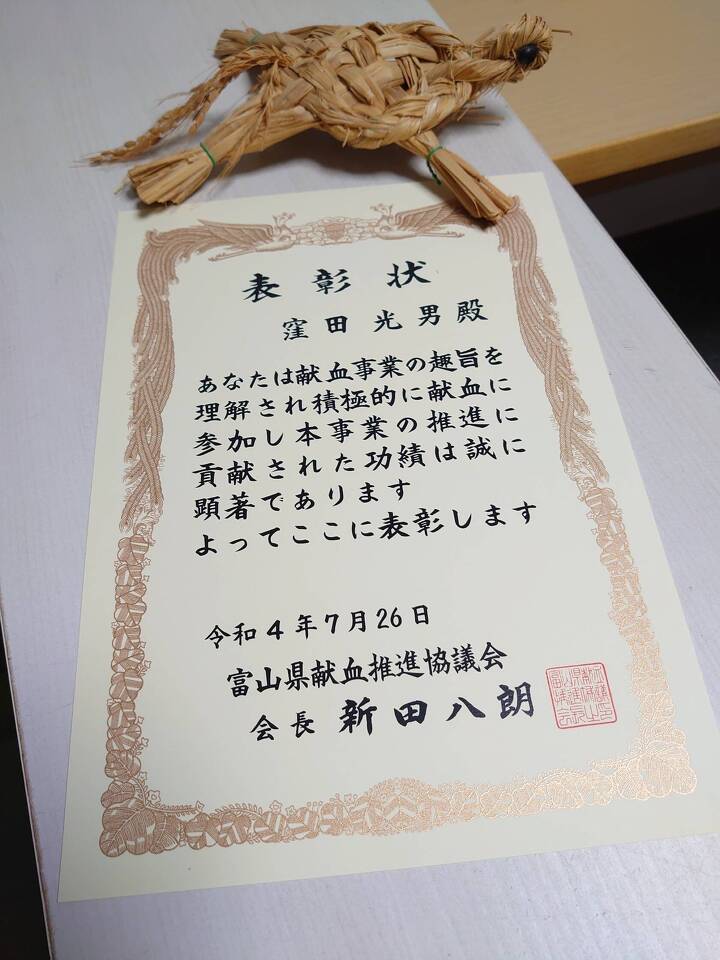 表彰状
窪田光男殿
あなたは献血事業の趣旨を
理解され積極的に献血に
参加し本事業の推進に
貢献された功績は誠に
顕著であります
よってここに表彰します
令和4年7月26日
富山県献血推進協議会
会長 新田八朗